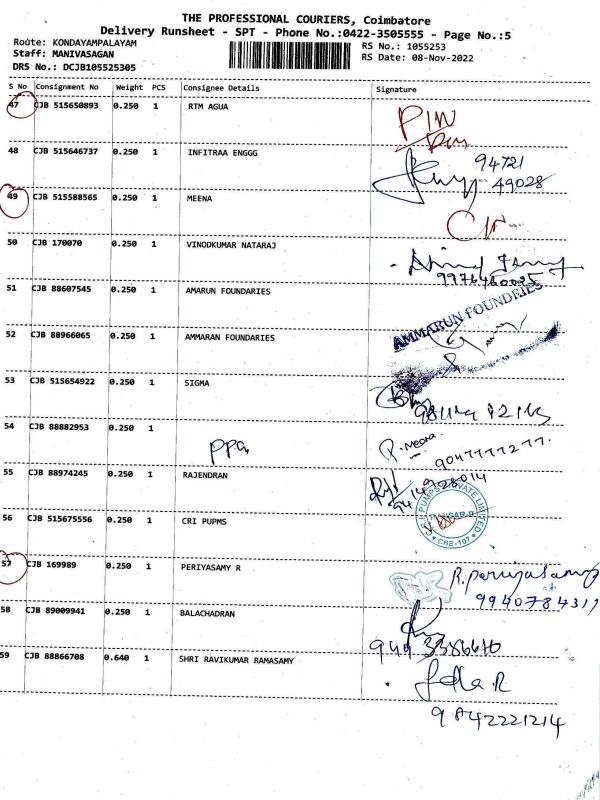 THE PROFESSIONAL COURIERS, Coimbatore
Delivery Runsheet - SPT - Phone No.:0422-3505555 - Page No.:5
Route: KONDAYAMPALAYAM
Staff: MANIVASAGAN
DRS No.: DCJB105525305
RS No.: 1055253
RS Date: 08-Nov-2022
S No Consignment No Weight PCS Consignee Details Signature
47 CJB 515650893 0.250 1 RTM AGUA
48 CJB 515646737 0.250 1 INFITRAA ENGGG 94721
49028
49 CJB 515588565 0.250 1 MEENA
50 CJB 170070 0.250 1 VINODKUMAR NATARAJ
51 CJB 88607545 0.250 1 AMARUN FOUNDARIES
AMMARUN FOUNDRIES
52 CJB 88966065 0.250 1 AMMARAN FOUNDARIES
53 CJB 515654922 0.250 1 SIGMA
54 CJB 88882953 0.250 1
55 CJB 88974245 0.250 1 RAJENDRAN
56 CJB 515675556 0.250 1 CRI PUPMS
PUMPS PRIVATE LIMITED
CBE-107
57 CJB 169989 0.250 1 PERIYASAMY R R. Periyasamy
9940784311
58 CJB 89009941 0.250 1 BALACHADRAN
59 CJB 88866708 0.640 1 SHRI RAVIKUMAR RAMASAMY
9842221214